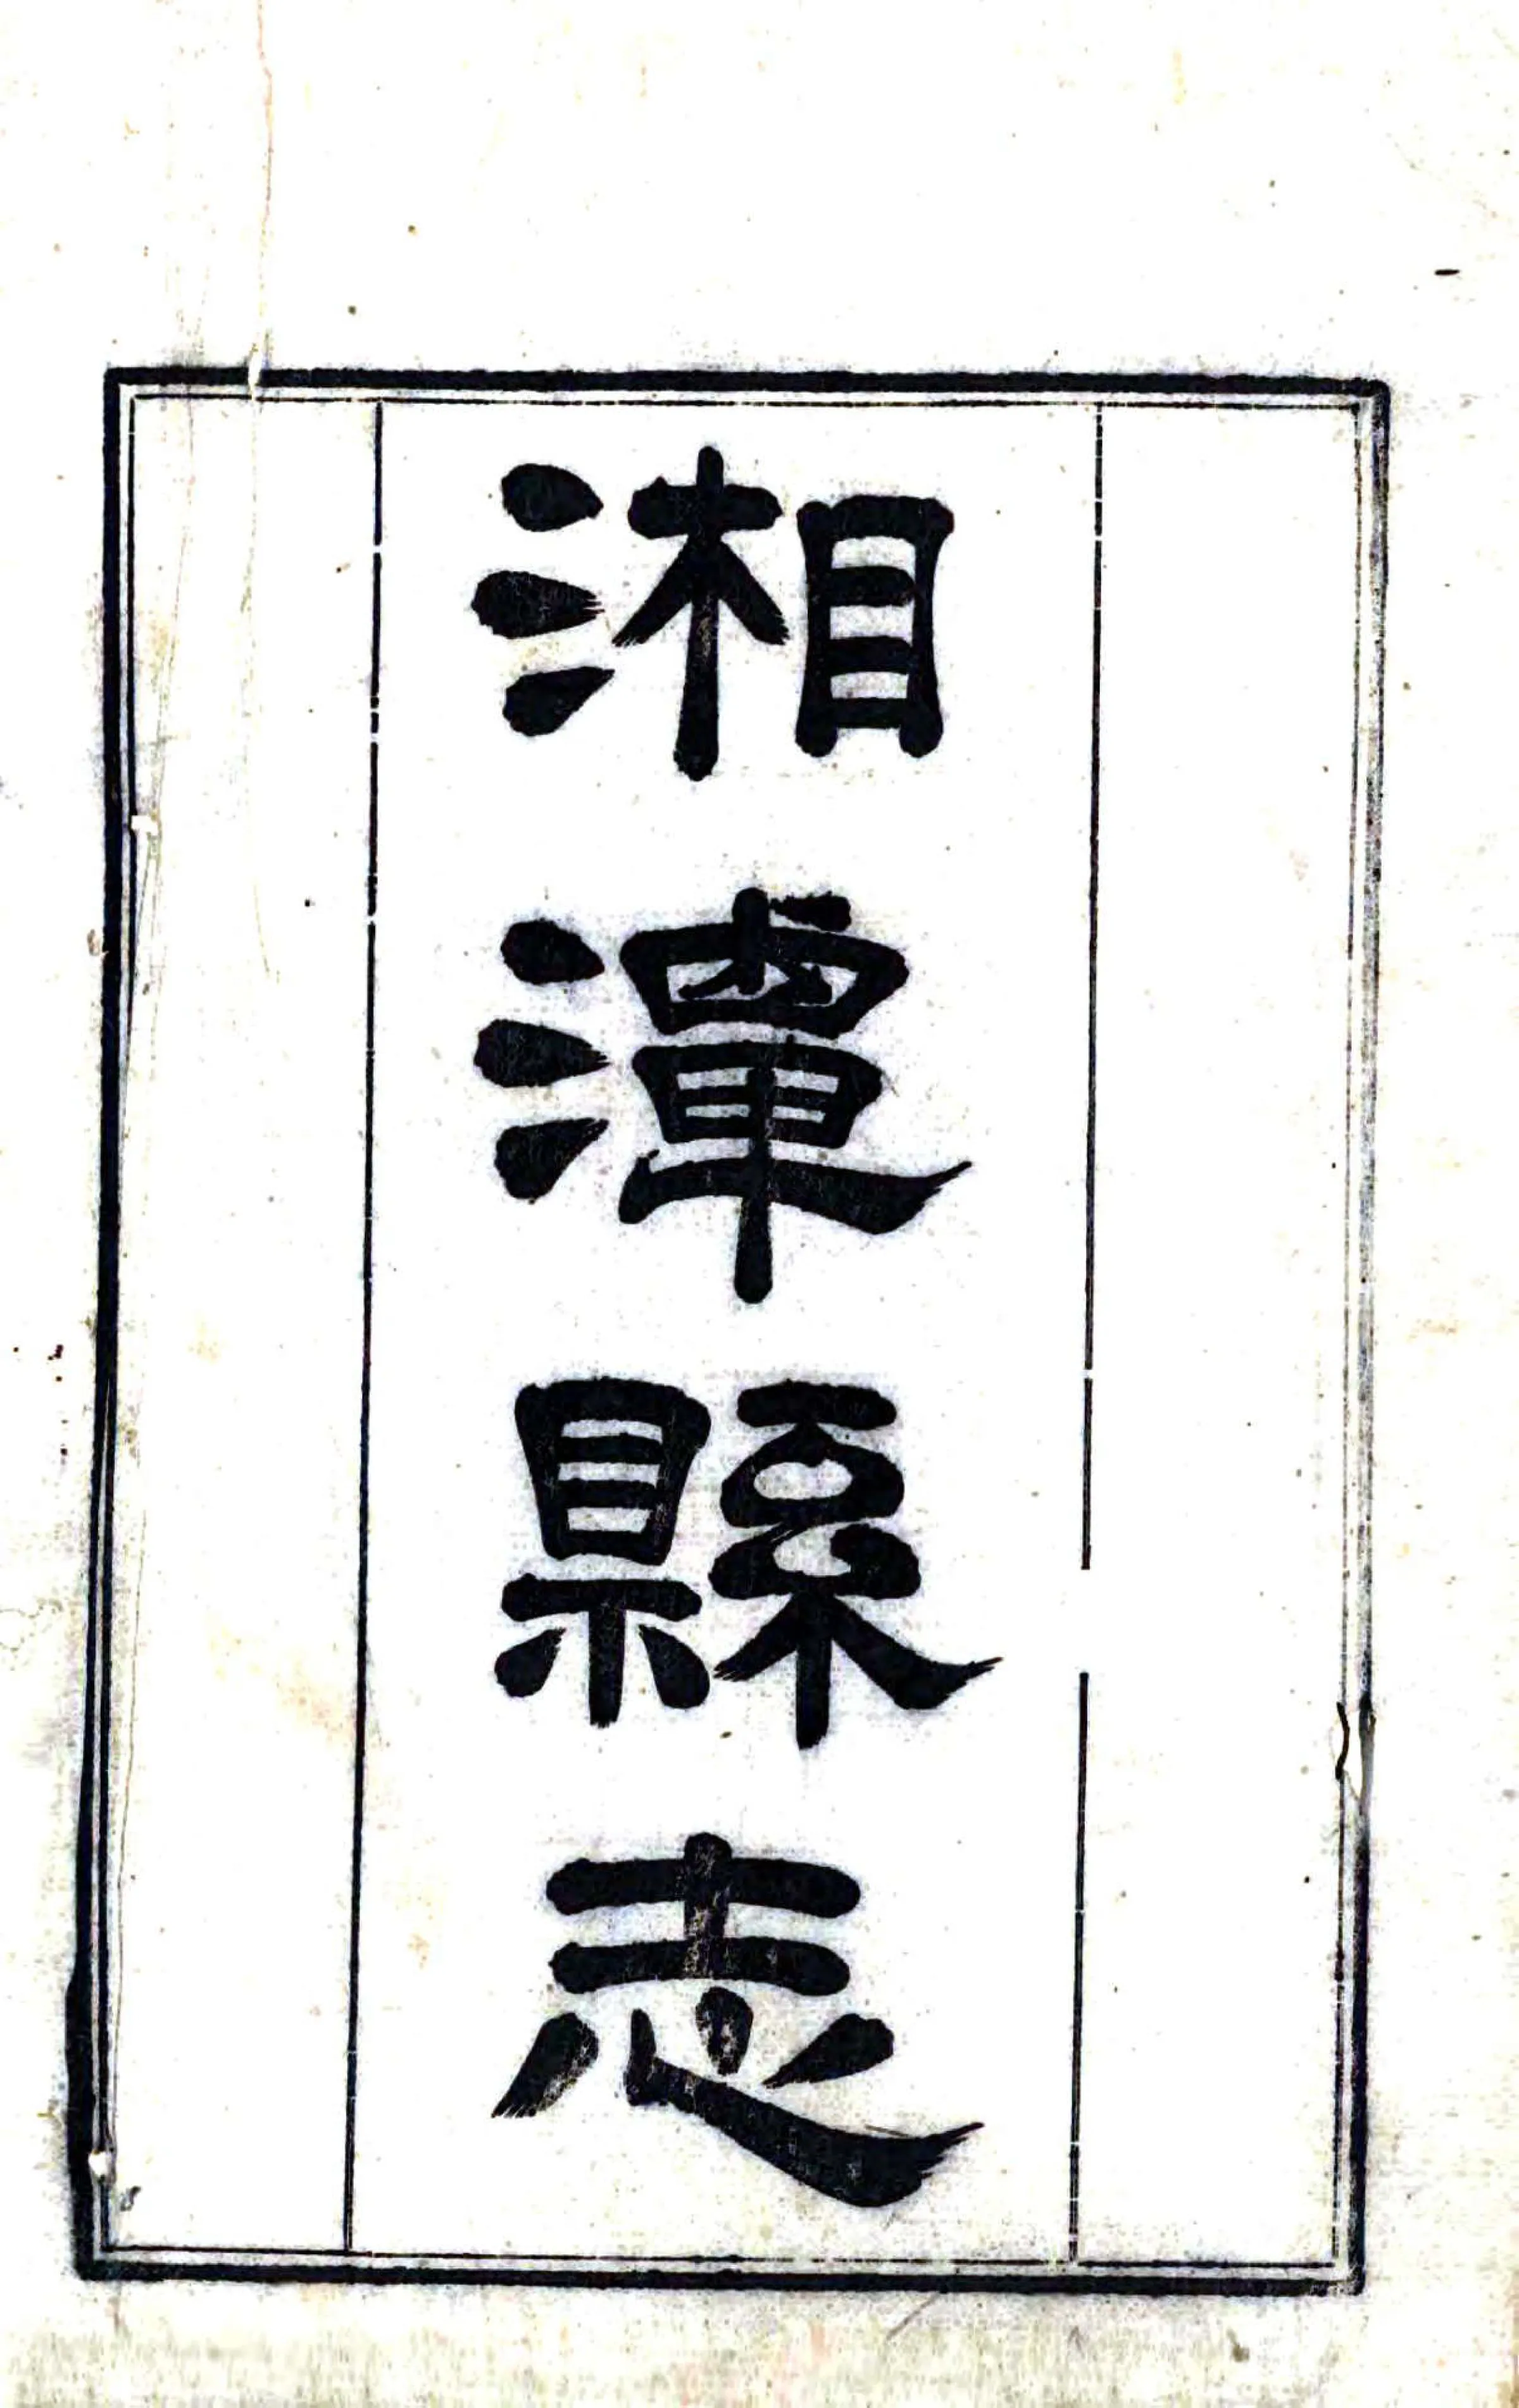 湘潭縣志